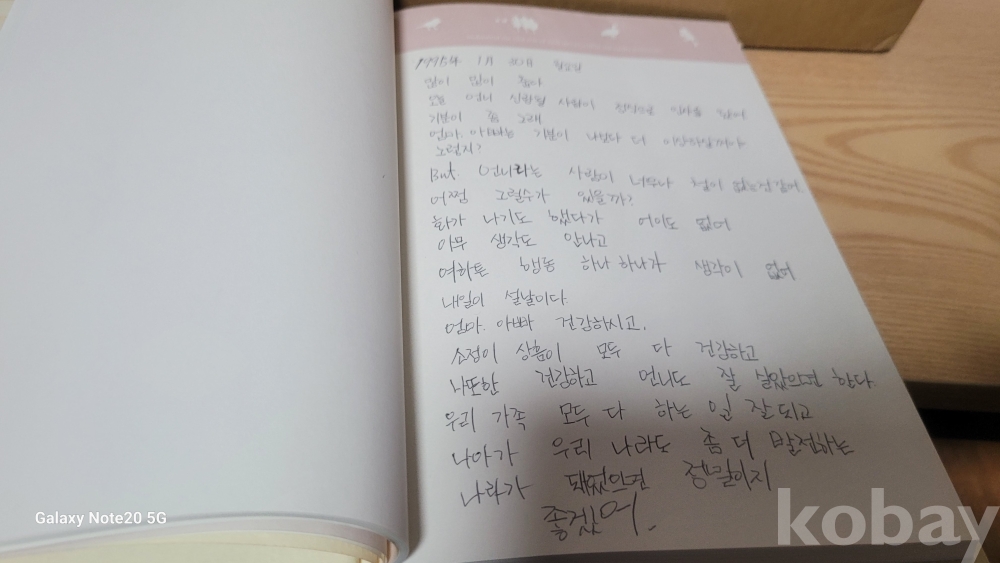 1995年 1月 30日 월요일
많이 많이 춥다
오늘 언니 신랑될 사람이 정식으로 인사를 왔어
기분이 좀 그래
엄마. 아빠는 기분이 나보다 더 이상하실꺼야
노렇지?
But. 언니라는 사람이 너무나 철이 없는것 같애.
어쩜 그럴수가 있을까?
화가 나기도 했다가 어이도 없어
아무 생각도 안나고
여하튼 행동 하나 하나가 생각이 없어
내일이 설날이다.
엄마. 아빠 건강하시고.
소정이 상흠이 모두 다 건강하고
나또한 건강하고 언니도 잘 살았으면 한다.
우리 가족 모두 다 하는 일 잘 되고
나아가 우리 나라도 좀 더 발전하는
나라가 돼었으면 정말이지
좋겠어.
Galaxy Note20 5G
kobay